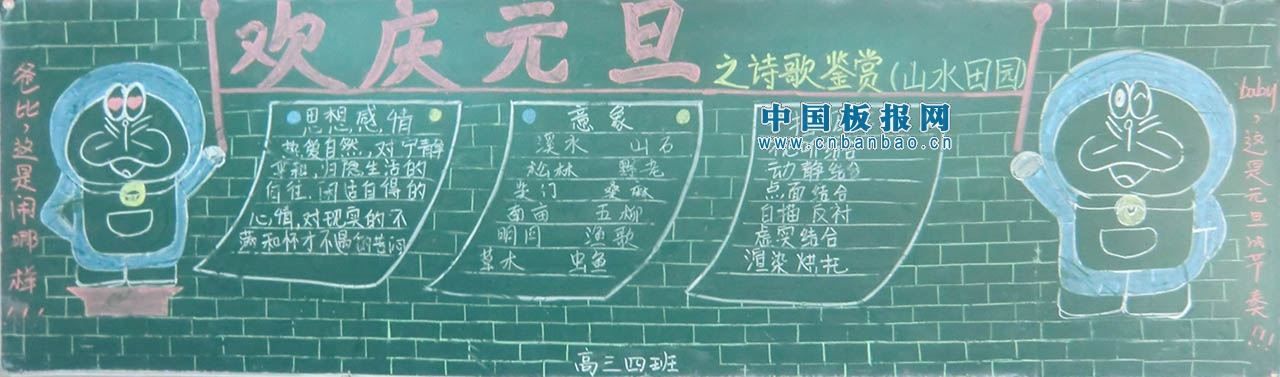 欢庆元旦
之诗歌鉴赏(山水田园)
爸比,这是闹哪样!!!
思想感情
热爱自然,对宁静
归隐生活的
闲适自得的
心情,对现实的不
满和怀才不遇的苦闷
意象
溪水 山石
松林 野老
柴门 桑麻
南亩 五柳
明月 渔歌
草木 虫鱼
中国板报网
www.cnbanbao.cn
动静结合
点面结合
白描 反衬
虚实结合
渲染 烘托
baby,这是元旦的节奏!!!
高三四班